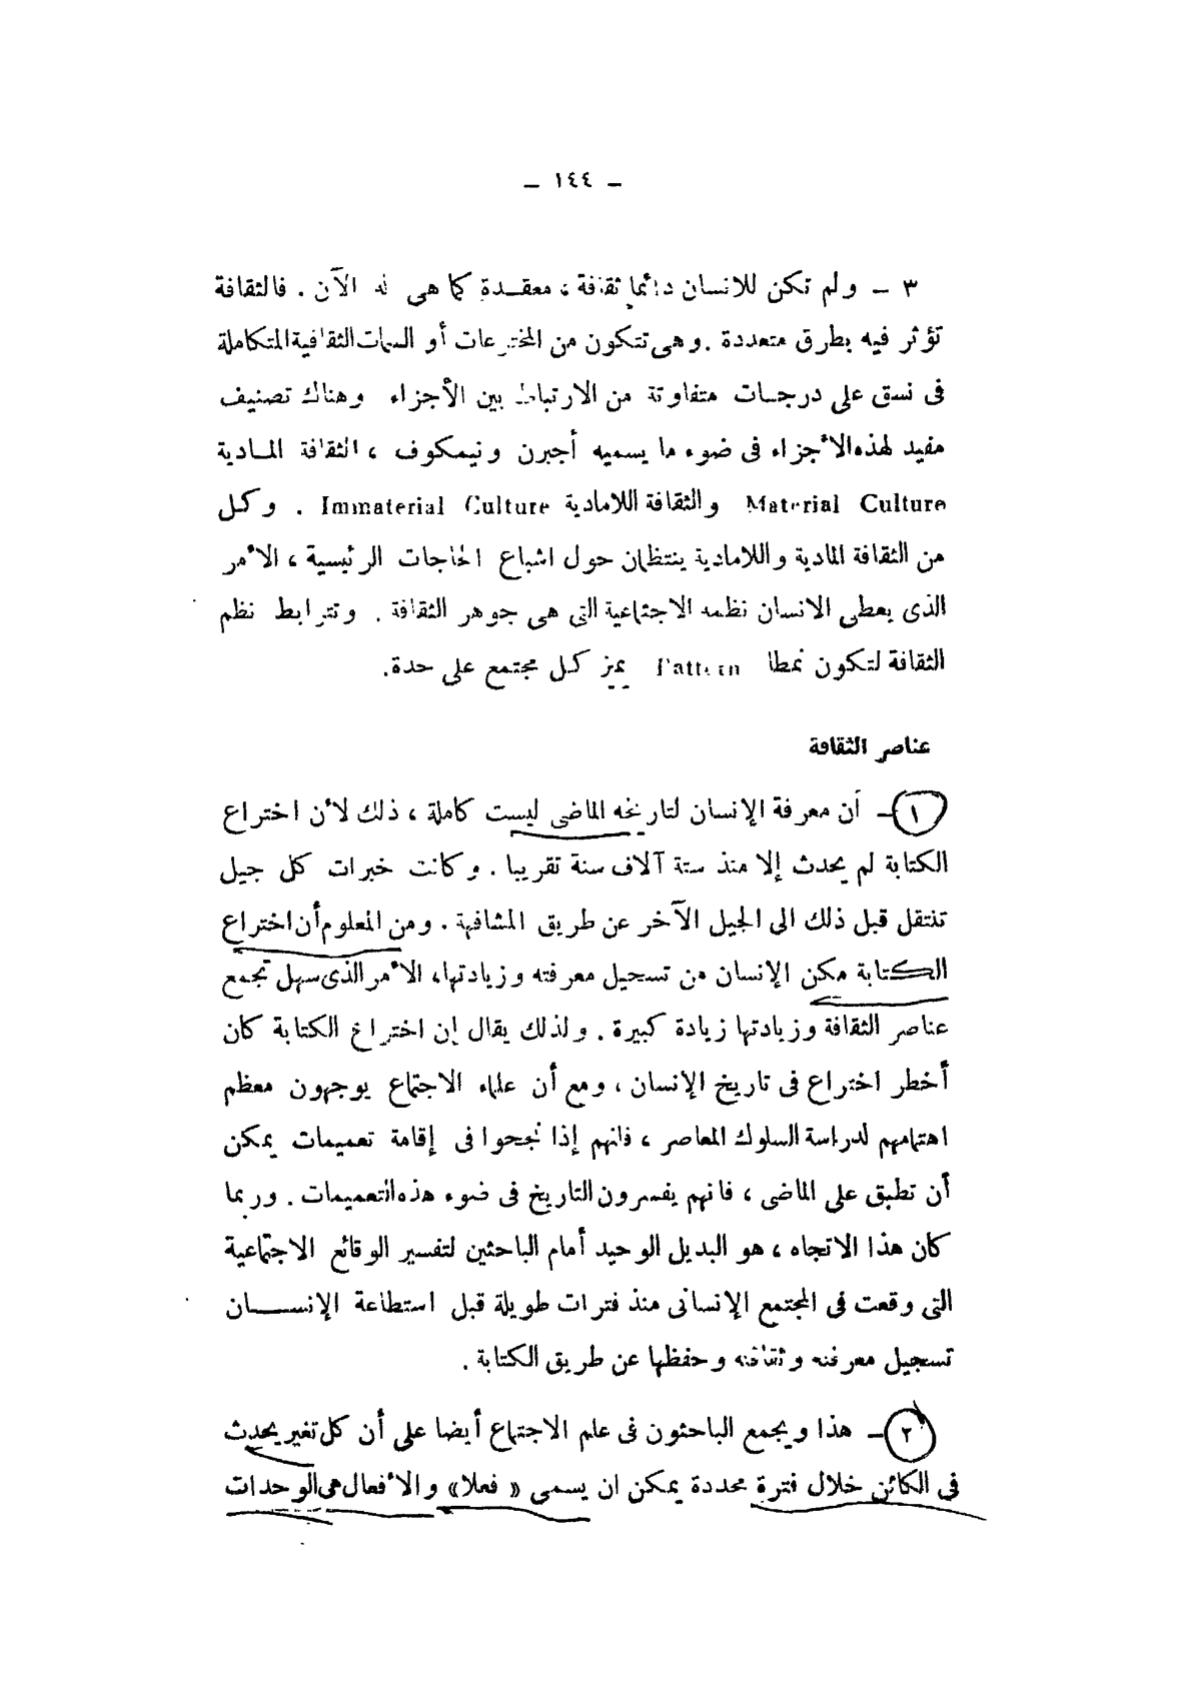 ــ ١٤٤ ــ
٣ ــ ولم تكن للانسان دائما ثقافة ، معقــدة كما هى له الآن . فالثقافة
تؤثر فيه بطرق متعددة . وهى تتكون من المخترعات أو السمات الثقافية المتكاملة
فى نسق على درجات متفاوتة من الارتباط بين الأجزاء وهناك تصنيف
مفيد لهذه الأجزاء فى ضوء ما يسميه أجبرن ونيمكوف ، الثقافة المـادية
Material Culture والثقافة اللامادية Immaterial Culture . وكـل
من الثقافة المادية واللامادية ينتظمان حول اشباع الحاجات الرئيسية ، الأمر
الذى يعطى الانسان نظمه الاجتماعية التى هى جوهر الثقافة . وتترابط نظم
الثقافة لتكون نمطا Pattern يميز كـل مجتمع على حدة.
عناصر الثقافة
١ ــ أن معرفة الإنسان لتاريخه الماضى ليست كاملة ، ذلك لأن اختراع
الكتابة لم يحدث إلا منذ ستة آلاف سنة تقريبا . وكانت خبرات كل جيل
تنتقل قبل ذلك الى الجيل الآخر عن طريق المشافهة . ومن المعلوم أن اختراع
الكتابة مكن الإنسان من تسجيل معرفته وزيادتها، الأمر الذى سهل تجمع
عناصر الثقافة وزيادتها زيادة كبيرة . ولذلك يقال إن اختراع الكتابة كان
أخطر اختراع فى تاريخ الإنسان ، ومع أن علماء الاجتماع يوجهون معظم
اهتمامهم لدراسة السلوك المعاصر ، فانهم إذا نجحوا فى إقامة تعميمات يمكن
أن تطبق على الماضى ، فانهم يفسرون التاريخ فى ضوء هذه التعميمات . وربما
كان هذا الاتجاه ، هو البديل الوحيد أمام الباحثين لتفسير الوقائع الاجتماعية
التى وقعت فى المجتمع الإنسانى منذ فترات طويلة قبل استطاعة الإنســـان
تسجيل معرفته وثقافته وحفظها عن طريق الكتابة .
٢ ــ هذا ويجمع الباحثون فى علم الاجتماع أيضا على أن كل تغير يحدث
فى الكائن خلال فترة محددة يمكن ان يسمى « فعلا» والأفعال هى الوحدات